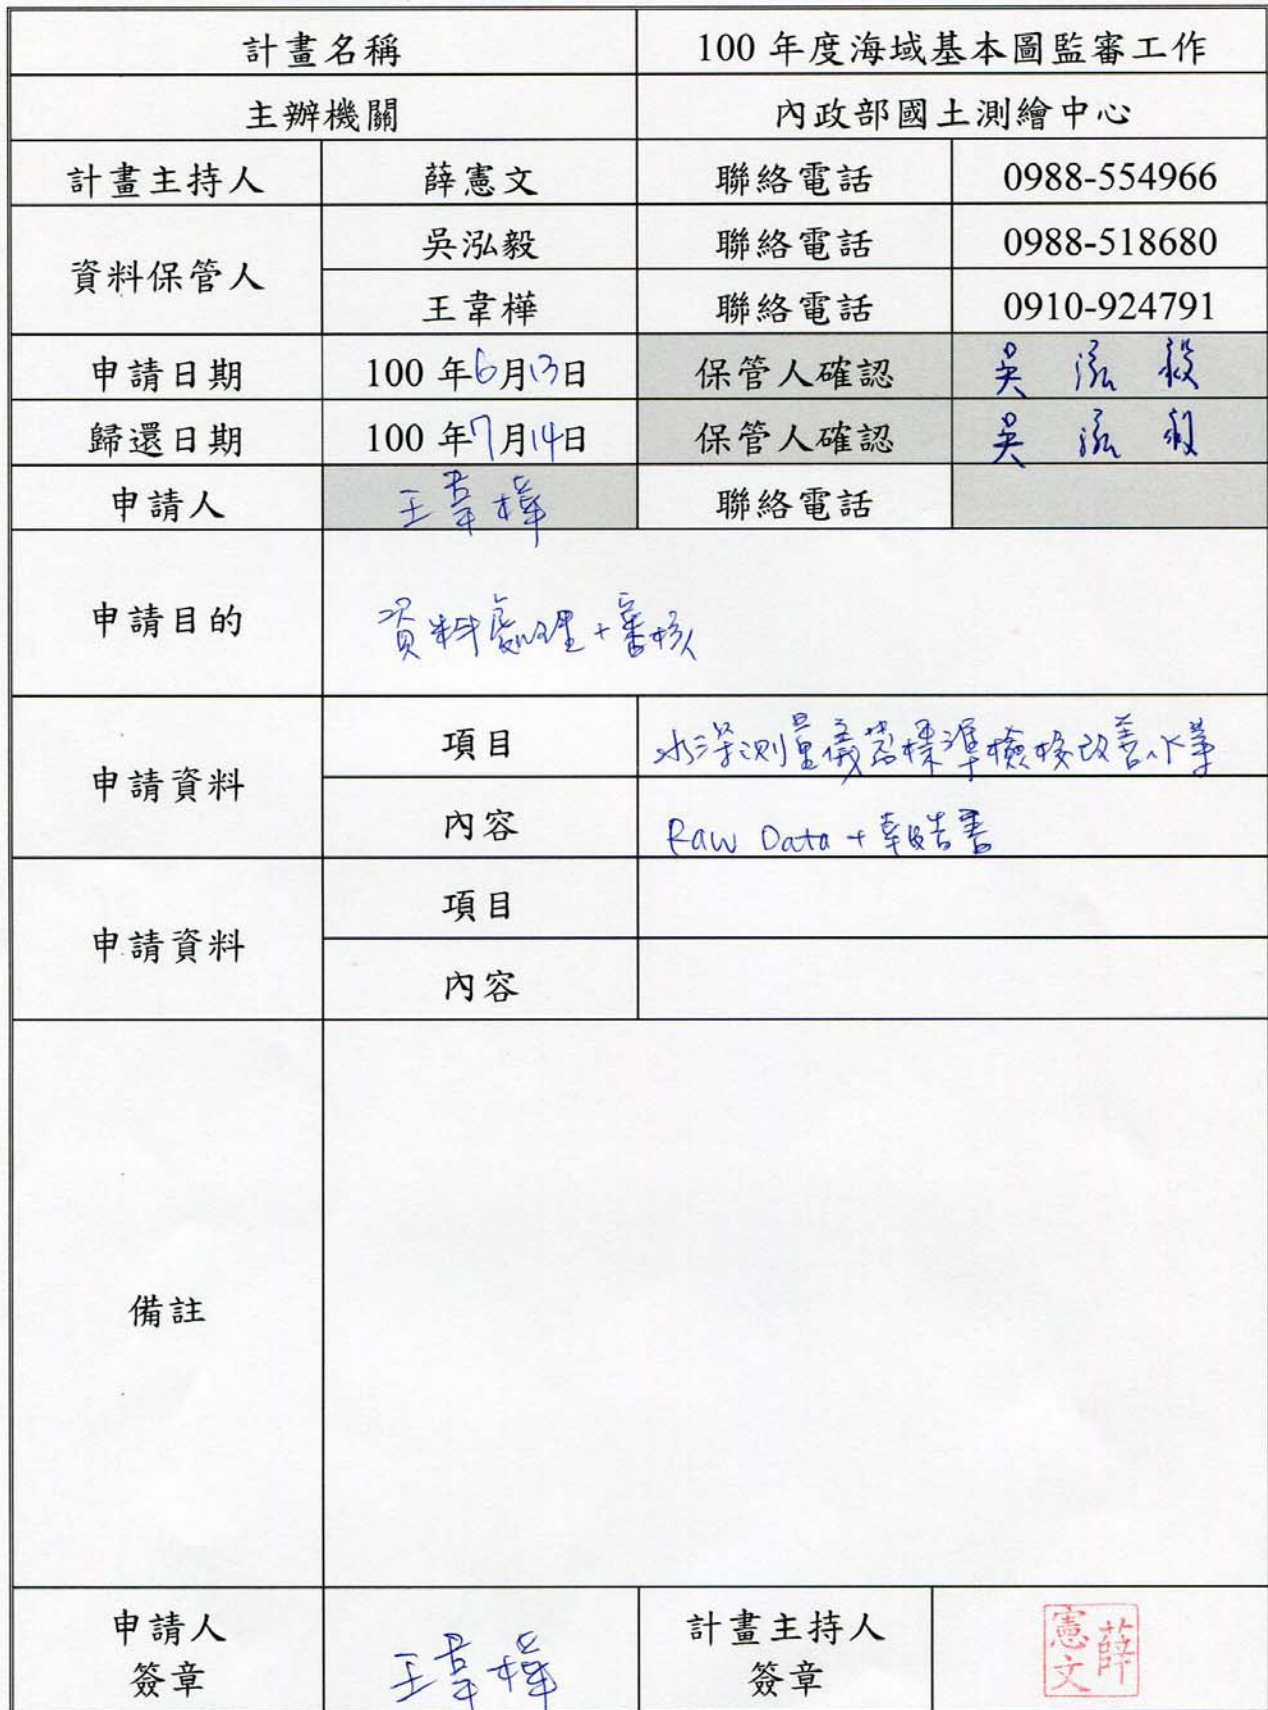 計畫名稱 100 年度海域基本圖監審工作
主辦機關 內政部國土測繪中心
計畫主持人 薛憲文 聯絡電話 0988-554966
資料保管人 吳泓毅 聯絡電話 0988-518680
王韋樺 聯絡電話 0910-924791
申請日期 100 年6月13日 保管人確認 吳泓毅
歸還日期 100 年7月14日 保管人確認 吳泓毅
申請人 王韋樺 聯絡電話
申請目的 資料處理+審核
申請資料 項目 水深測量儀器標準檢校改善作業
內容 Raw Data + 報告書
申請資料 項目
內容
備註
申請人 計畫主持人
簽章 王韋樺 簽章 薛憲文